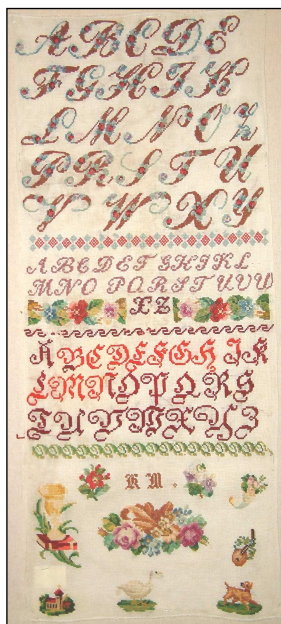 A B C D E
F G H I K
L M N O Z
P R S T U
V W X Y
A B C D E F G H I K L
M N O P Q R S T U V W
X Z
A B C D E F G H I K
L M N O P Q R S
T U V W X Y Z
K M .